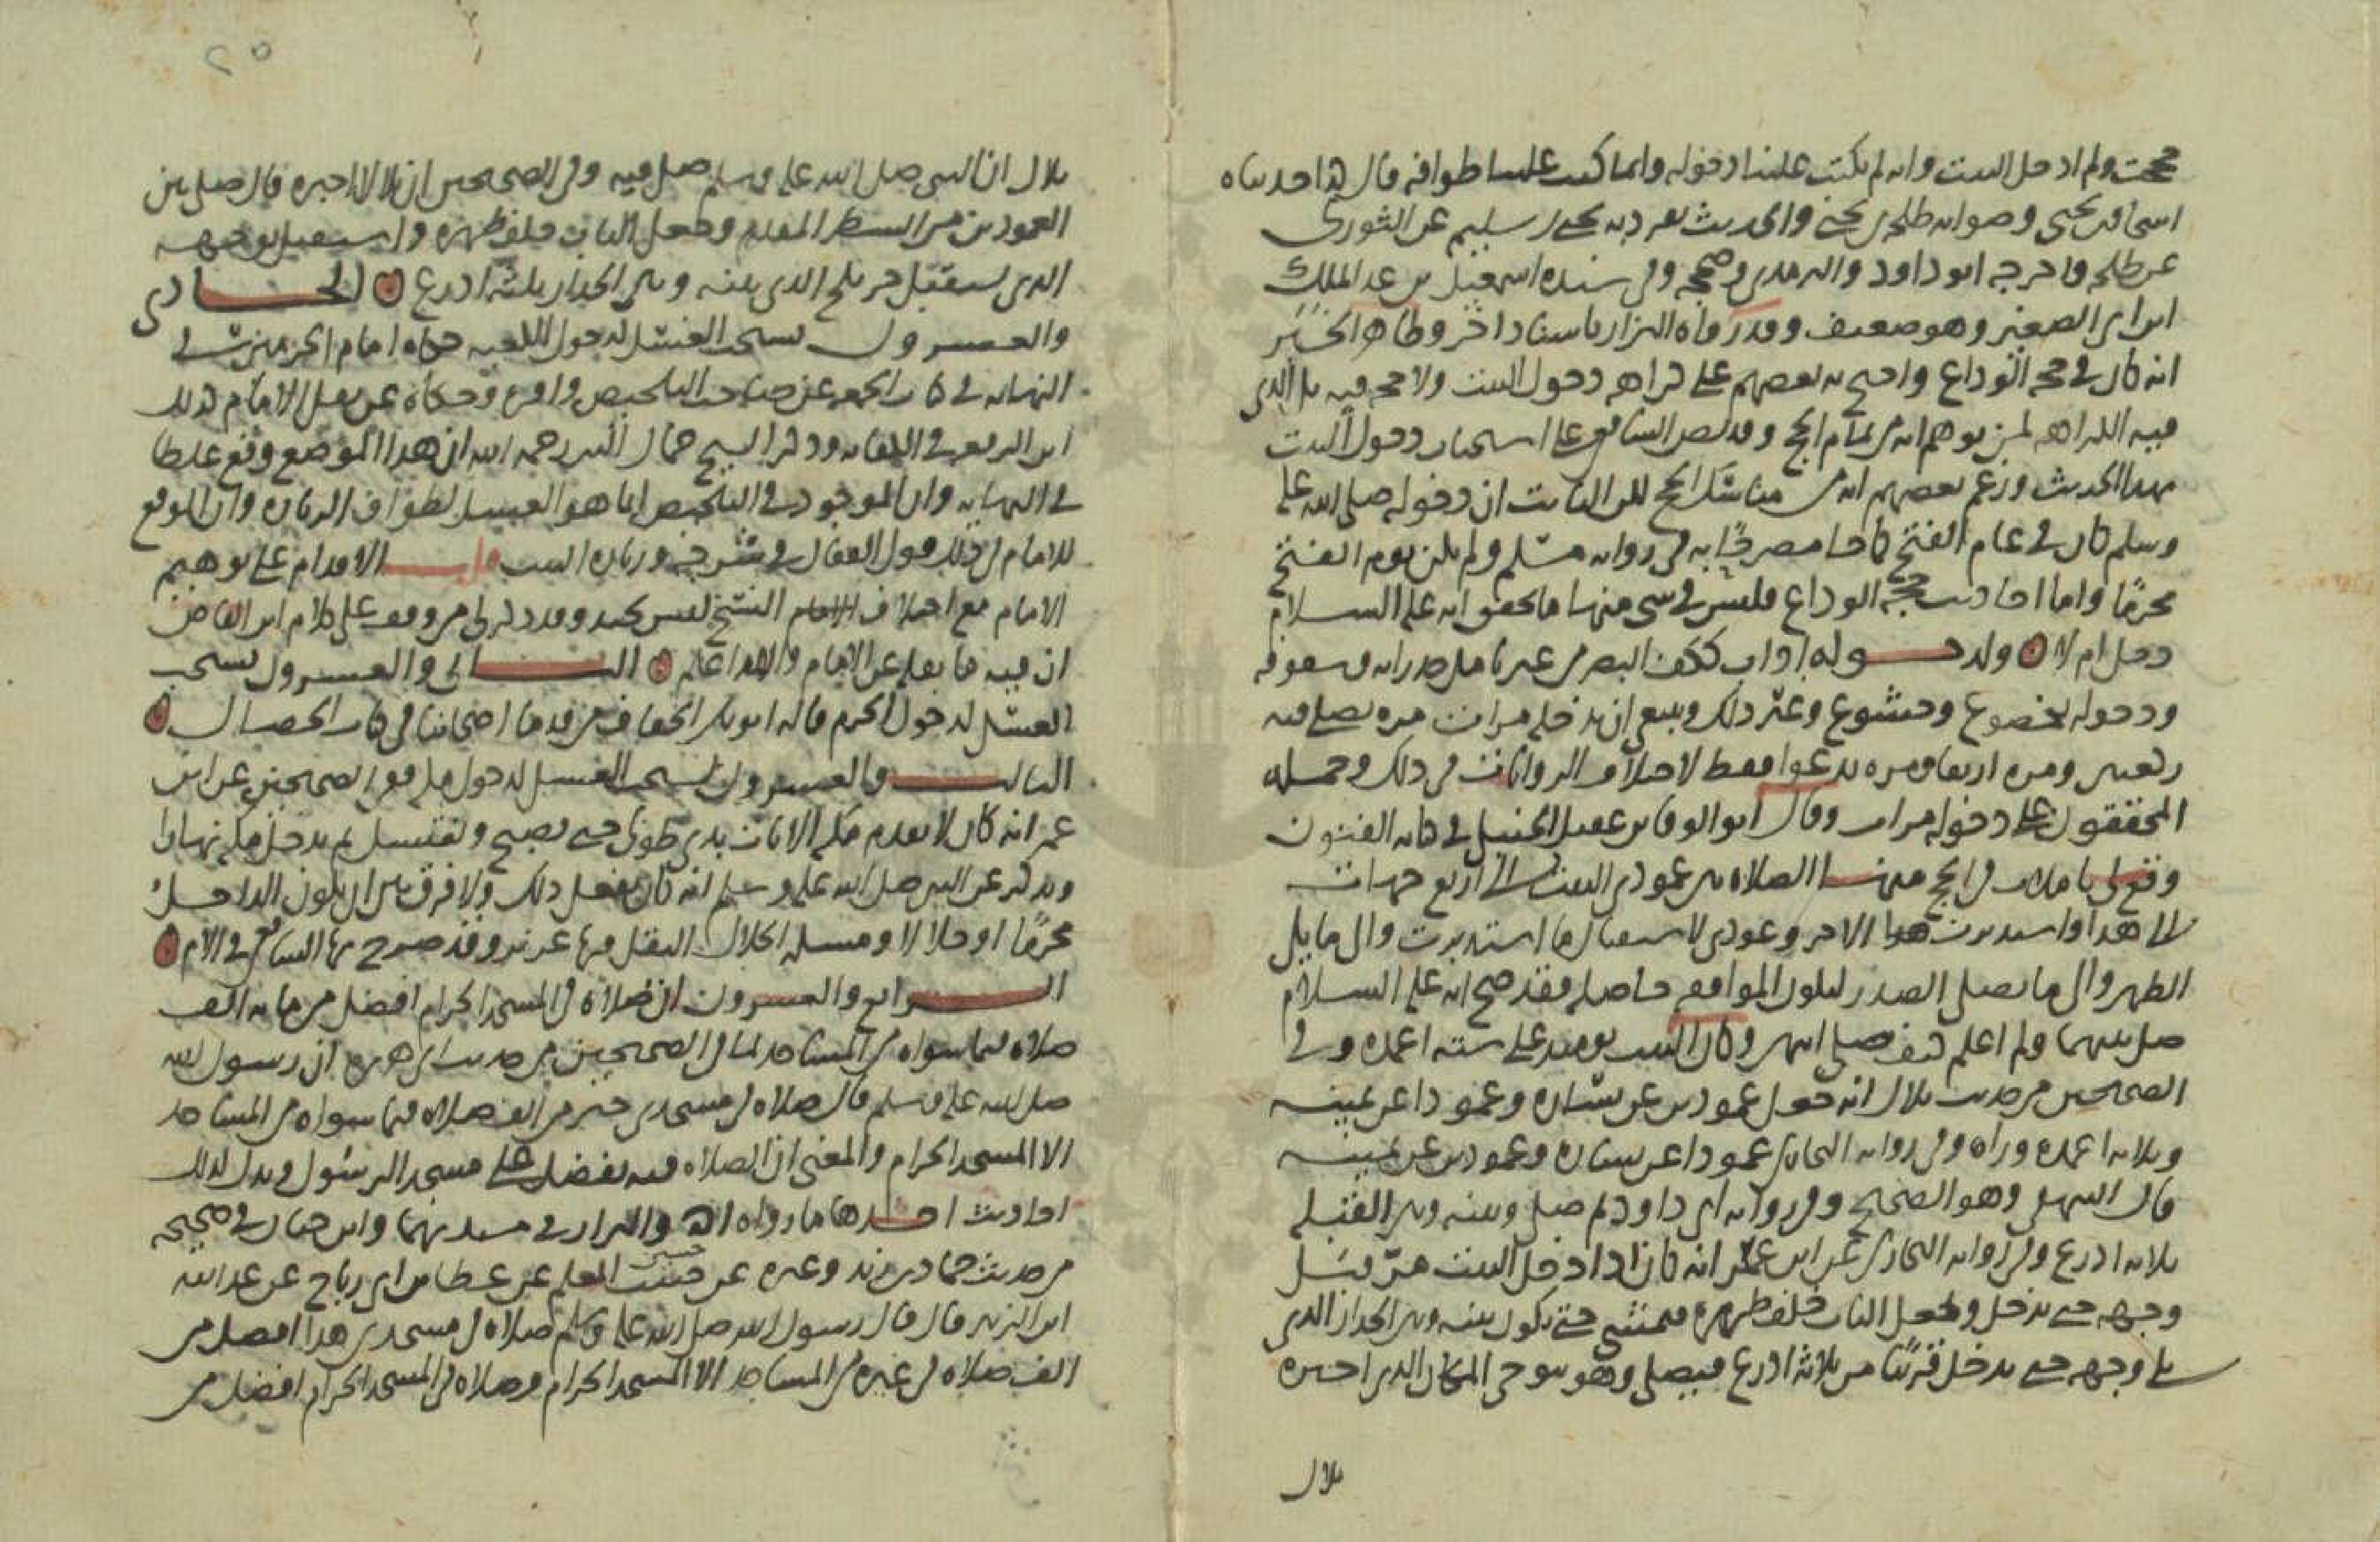 حججت ولم ادخل البيت وانه لم يكتب علينا دخوله وانما كتب علينا طوافه قال هذا حدثناه
اسحاق بن يحيى وصوابه طلحة بن يحيى والحديث تفرد به يحيى بن سليم عن الثوري
عن طلحة واخرجه ابو داود والترمذي وصححه وفي سنده اسمعيل بن عبد الملك
ابن ابي الصغير وهو ضعيف وقد رواه البزار باسناد اخر وظاهر الخبر
انه كان في حجة الوداع واحتج به بعضهم على كراهة دخول البيت ولا حجة فيه بل الذي
فيه الكراهة لمن توهم انه من تمام الحج وقد نص الشافعي على استحباب دخول البيت
بهذا الحديث وزعم بعضهم انه من مناسك الحج لكن الثابت ان دخوله صلى الله عليه
وسلم كان في عام الفتح كما جا مصرحا به في رواية مسلم ولم يكن يوم الفتح
محرما واما احاديث حجة الوداع فليس في شي منها ما تحقق انه عليه السلام
دخل ام لا ولدخوله اداب ككف البصر من غير تامل جدرانه وسقوفه
ودخوله بخضوع وخشوع وغير ذلك وينبغي ان يدخله مرات مرة يصلي فيه
ركعتين ومرة اربعا ومرة يدعوا فقط لاختلاف الروايات في ذلك وحمله
المحققون على دخوله مرات وقال ابو الوفا بن عقيل الحنبلي في كتابه الفنون
وقع لي تاملات في الحج منها الصلاة بين عمودي البيت الى اربع جهات
الى هذا واستدبرت هذا الاخر وعودي لاستقبال ما استدبرت وال ما يلي
الظهر وال ما يصلي الصدر ليكون الموافقة حاصلة فقد صح انه عليه السلام
صلى بينهما ولم اعلم كيف صلى اليهم وكان البيت يومئذ على ستة اعمدة وفي
الصحيحين من حديث بلال انه جعل عمودين عن يساره وعمودا عن يمينه
وثلاثة اعمدة وراه وفي رواية البخاري عمودا عن يساره وعمودين عن يمينه
قال البيهقي وهو الصحيح وفي رواية ابي داود ثم صلى وبينه وبين القبلة
ثلاثة اذرع وفي رواية البخاري عن ابن عمر انه كان اذا دخل البيت مر قبل
وجهه حتى يدخل ويجعل الباب خلف ظهره فيمشي حتى يكون بينه وبين الجدار الذي
يلي وجهه حتى يدخل قريبا من ثلاثة اذرع فيصلي وهو يتوخى المكان الذي اخبره
بلال
٢٥
بلال ان النبي صلى الله عليه وسلم صلى فيه وفي الصحيحين ان بلالا اخبره قال صلى بين
العمودين من السطر المقدم وجعل الباب خلف ظهره واستقبل بوجهه
الذي يستقبل حين يلج الذي بينه وبين الجدار ثلاثة اذرع الحادي
والعشرون يستحب الغسل لدخول الكعبة حكاه امام الحرمين في
النهاية في كتاب الجمعة عن صاحب التلخيص واقره وحكاه عن نقل الامام كذلك
ابن الرفعة في الكفاية وذكر الشيخ جمال الدين رحمه الله ان هذا الموضع وقع غلطا
في النهاية وان الموجود في التلخيص انما هو الغسل لطواف الزيارة وان الموقع
للامام في ذلك قول القفال في شرحه وزيارة البيت قلت الاقدام على توهيم
الامام مع اختلاف النسخ ليس بجيد وقد ذكر لي من وقف على كلام ابن القاص
ان فيه ما نقله عن الامام والله اعلم الثاني والعشرون يستحب
الغسل لدخول الحرم قاله ابو بكر الخفاف من قدما اصحابنا في كتاب الخصال
الثالث والعشرون يستحب الغسل لدخول مكة ففي الصحيحين عن ابن
عمر انه كان لا يقدم مكة الا بات بذي طوى حتى يصبح ويغتسل ثم يدخل مكة نهارا
ويذكر عن النبي صلى الله عليه وسلم انه كان يفعل ذلك ولا فرق بين ان يكون الداخل
محرما او حلالا ومسلة الحلال النقل فيها عزيز وقد صرح بها الشافعي في الام
الرابع والعشرون ان الصلاة في المسجد الحرام افضل من مائة الف
صلاة فيما سواه من المساجد لما في الصحيحين من حديث ابي هريرة ان رسول الله
صلى الله عليه وسلم قال صلاة في مسجدي خير من الف صلاة فيما سواه من المساجد
الا المسجد الحرام والمعنى ان الصلاة فيه تفضل على مسجد الرسول ويدل لذلك
احاديث احدها ما رواه احمد والبزار في مسنديهما وابن حبان في صحيحه
من حديث حماد بن زيد وغيره عن حبيب المعلم عن عطا بن ابي رباح عن عبد الله
ابن الزبير قال قال رسول الله صلى الله عليه وسلم صلاة في مسجدي هذا افضل من
الف صلاة في غيره من المساجد الا المسجد الحرام وصلاة في المسجد الحرام افضل من